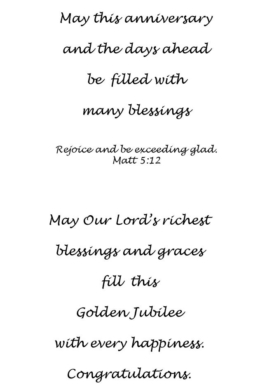 May this anniversary
and the days ahead
be filled with
many blessings
Rejoice and be exceeding glad.
Matt 5:12
May Our Lord's richest
blessings and graces
fill this
Golden Jubilee
with every happiness.
Congratulations.